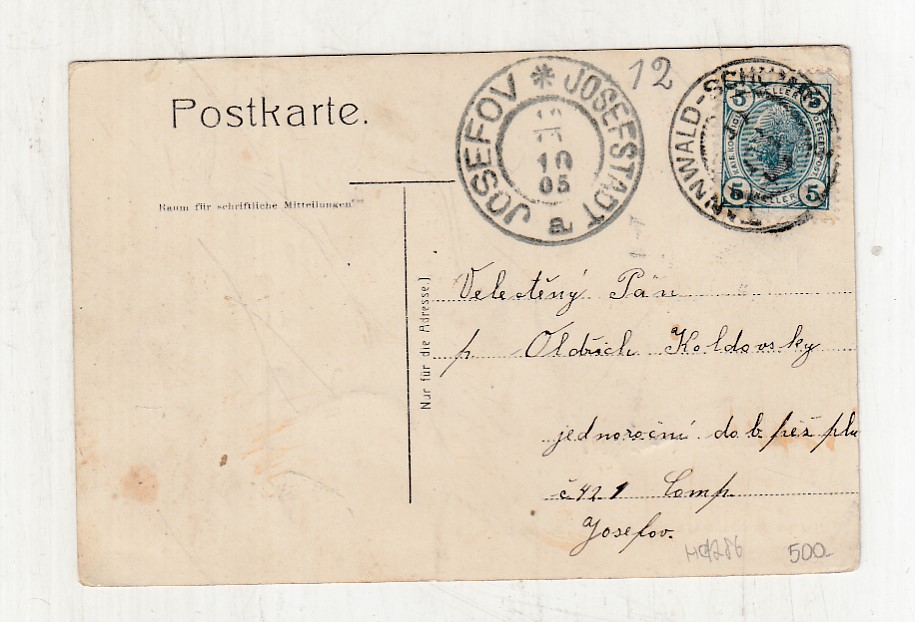 12
Postkarte.
JOSEFOV * JOSEFSTADT
10
05
a
TANNWALD-SCHU
5 HELLER 5
5 HELLER 5
Raum für schriftliche Mitteilungen
Nur für die Adresse.)
Velectěný Pán
p. Oldřich Koldovsky
jednoroční dob. pěš plu
č 42 1 Comp
Josefov.
500.-